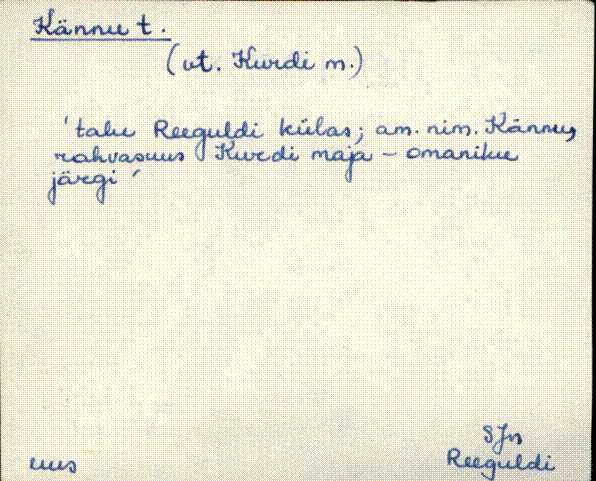 Kännu t.
(vt. Kurdi m.)
'talu Reeguldi külas; am. nim. Kännu,
rahvasuus Kurdi maja - omaniku
järgi'
SJn
uus Reeguldi